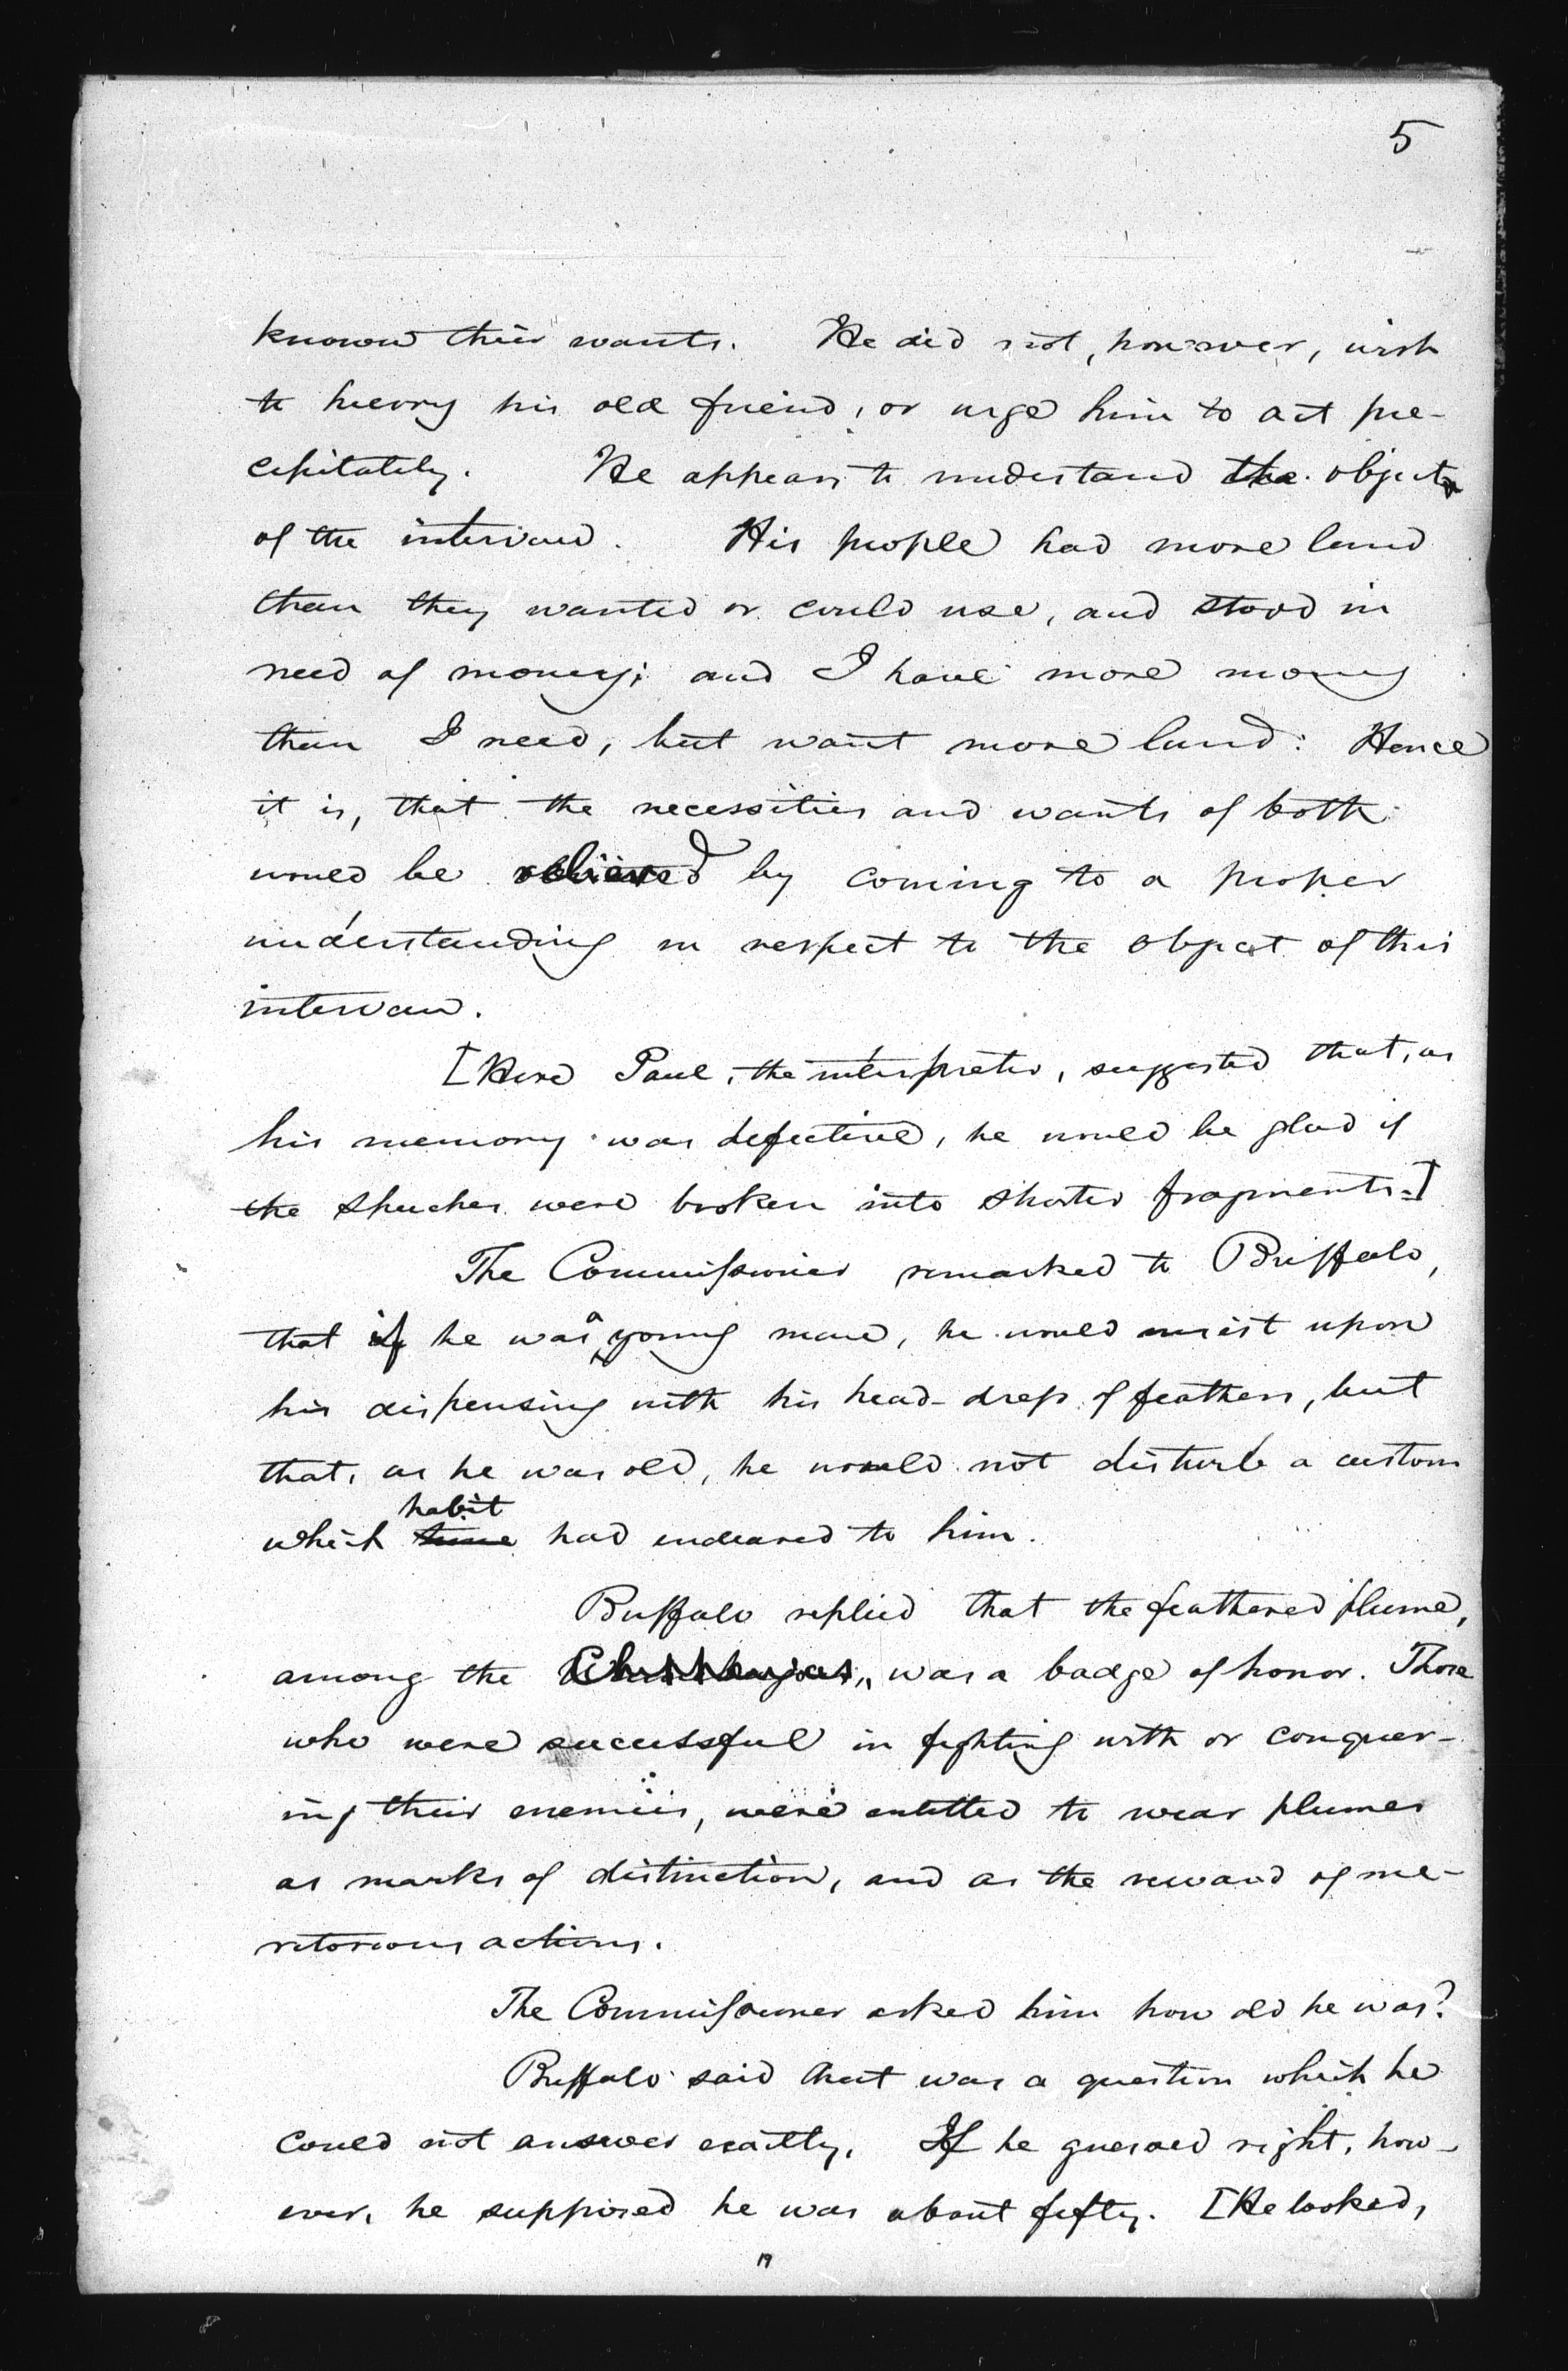 5
known their wants. He did not, however, wish
to hurry his old friend, or urge him to act pre-
cipitately. He appears to understand the object
of the interview. His people had more land
than they wanted or could use, and stood in
need of money; and I have more money
than I need, but want more land: Hence
it is, that the necessities and wants of both
would be relieved by coming to a proper
understanding in respect to the object of this
interview.
[Here Paul, the interpreter, suggested that, as
his memory was defective, he would be glad if
the speeches were broken into shorter fragments.]
The Commissioner remarked to Buffalo,
that if he was a young man, he would insist upon
his dispensing with his head-dress of feathers, but
that, as he was old, he would not disturb a custom
which habit time had endeared to him.
Buffalo replied that the feathered plume,
among the Chippewas, was a badge of honor. Those
who were successful in fighting with or conquer-
ing their enemies, were entitled to wear plumes
as marks of distinction, and as the reward of me-
ritorious actions.
The Commissioner asked him how old he was?
Buffalo said that was a question which he
could not answer exactly. If he guessed right, how-
ever, he supposed he was about fifty. [He looked,
19